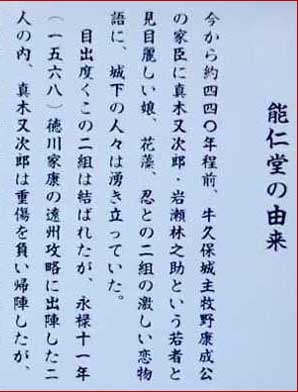 能仁堂の由来
今から約四四〇年程前、牛久保城主牧野康成公
の家臣に真木又次郎・岩瀬林之助という若者と
見目麗しい娘、花藻、忍との二組の激しい恋物
語に、城下の人々は湧き立っていた。
目出度くこの二組は結ばれたが、永禄十一年
(一五六八)徳川家康の遠州攻略に出陣した二
人の内、真木又次郎は重傷を負い帰陣したが、